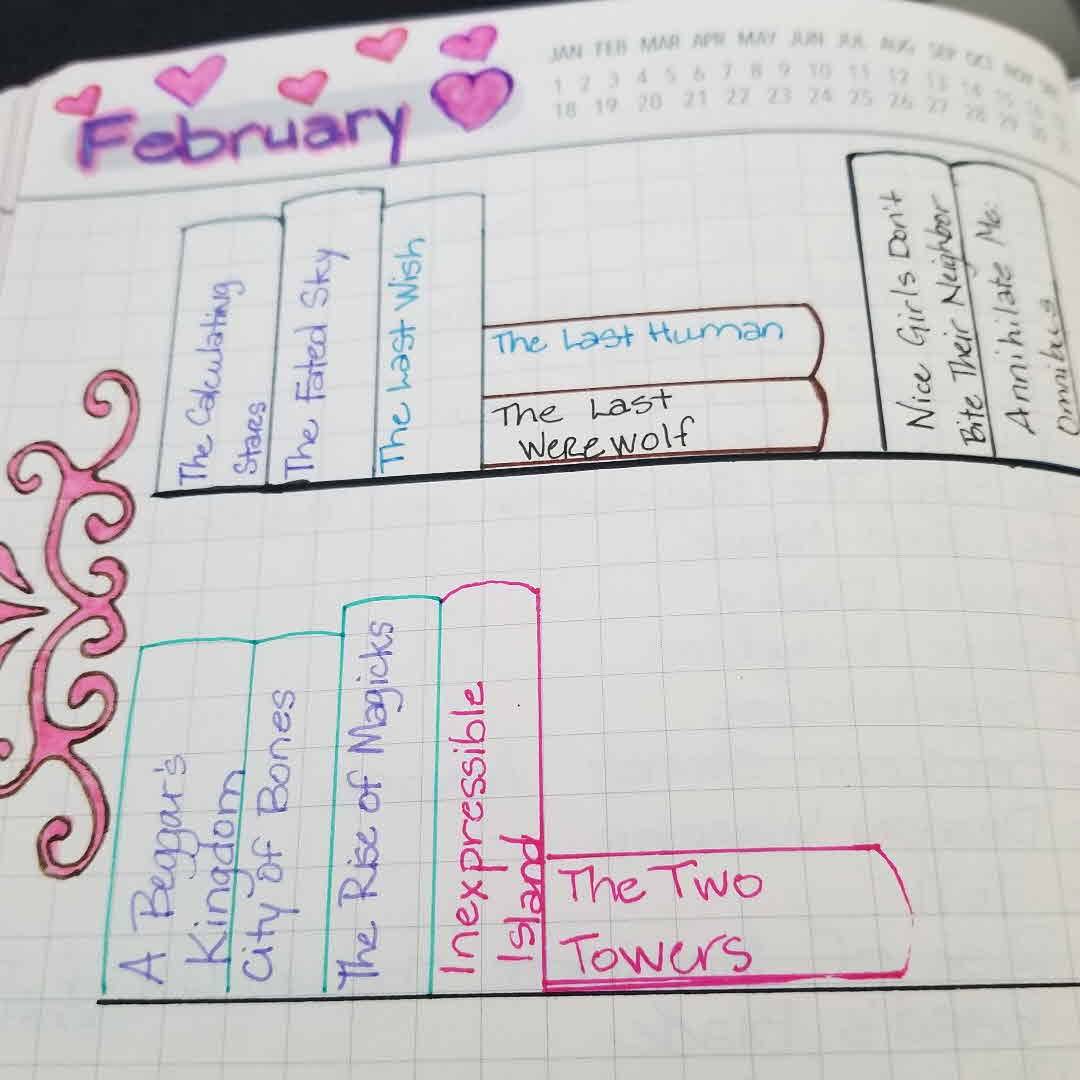 JAN FEB MAR APR MAY JUN JUL AUG SEP OCT NOV
1 2 3 4 5 6 7 8 9 10 11 12 13 14 15 16
18 19 20 21 22 23 24 25 26 27 28 29 30
February
The Calculating
Stars
The Fated Sky
The Last Wish
The Last Human
The Last
Werewolf
Nice Girls Don't
Bite Their Neighbor
Annihilate Me:
Omnibus
A Beggar's
Kingdom
City of Bones
The Rise of Magicks
Inexpressible
Island
The Two
Towers